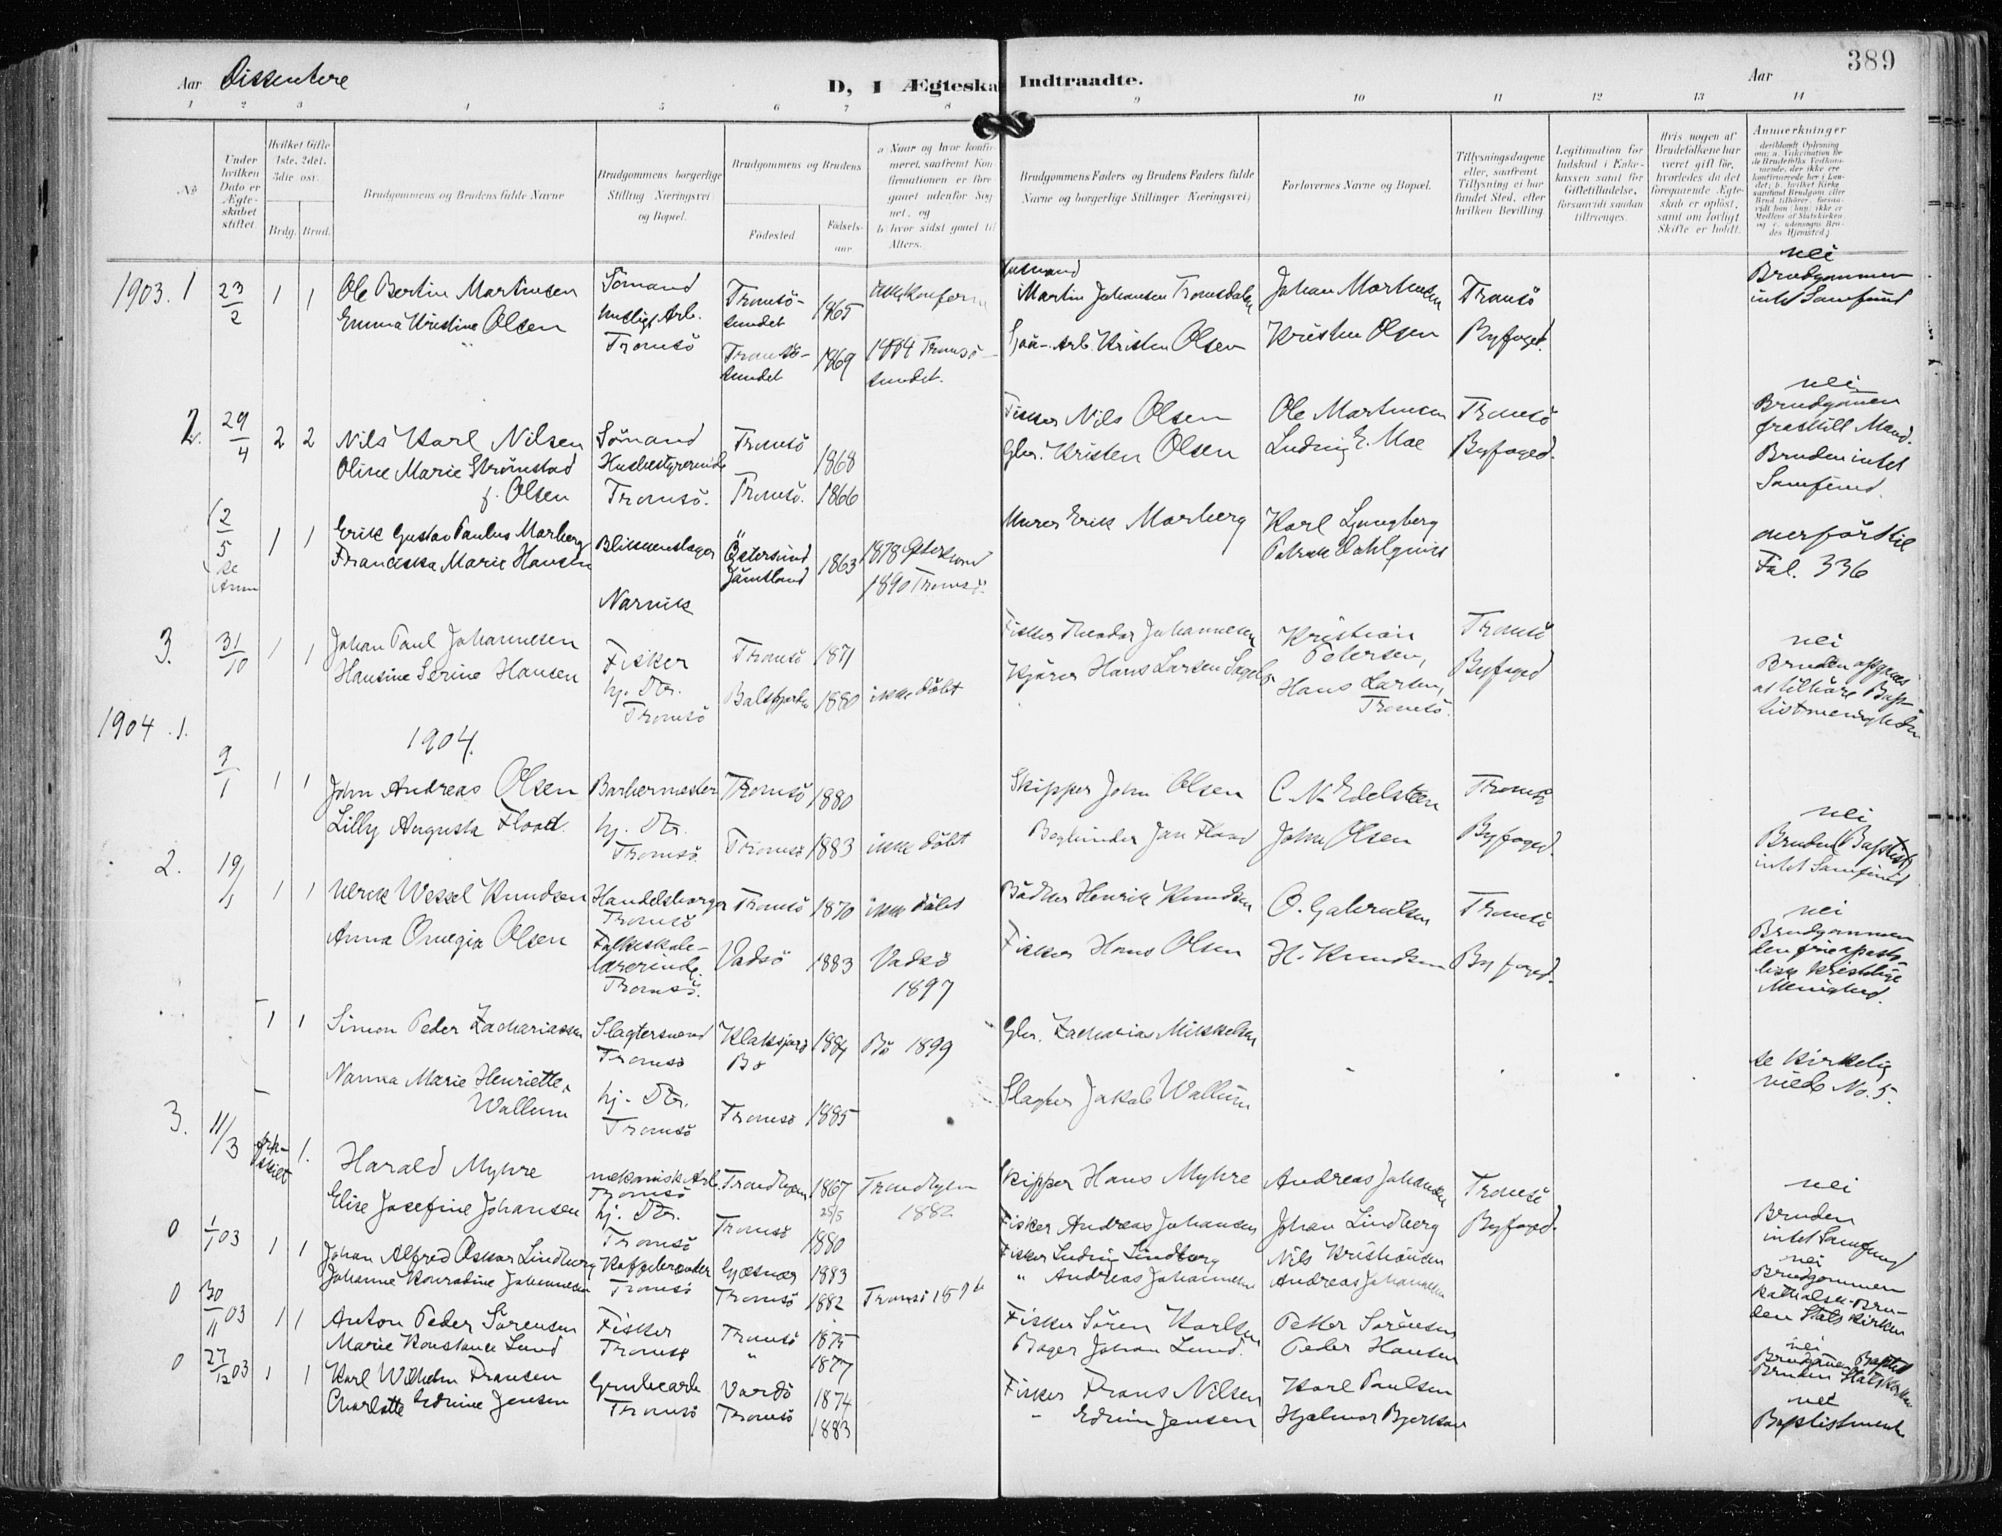 389
Aar Dissentere
D, I Ægteska Indtraadte.
Aar
1 2 3 4 5 6 7 8 9 10 11 12 13 14
No
Under hvilken Dato er Ægteskabet stiftet
Hvilket Gifte 1ste, 2det, 3die osv.
Brdg. Brud.
Brudgommens og Brudens fulde Navne
Brudgommens borgerlige Stilling Næringsvei og Bopæl.
Brudgommens og Brudens
Fødested
Fødselsaar.
a Naar og hvor konfirmeret, saafremt Konfirmationen er foregaaet udenfor Sognet, og
b hvor sidst gaaet til Alters.
Brudgommens Faders og Brudens Faders fulde Navne og borgerlige Stillinger Næringsvei)
Forlovernes Navne og Bopæl.
Tillysningsdagene eller, saafremt Tillysning ei har fundet Sted, efter hvilken Bevilling
Legitimation for Indskud i Enkekassen samt for Giftetilladelse, forsaavidt saadan tiltrænges.
Hvis nogen af Brudefolkene har været gift før, hvorledes da det foregaaende Ægteskab er opløst, samt om lovligt Skifte er holdt.
Anmerkninger
1903. 1 23/2 1 1
Ole Bertin Martinsen
Emma Kristine Olsen
Sömand
Tromsö
Tromsösundet 1865
Tromsösundet 1869
1884 Tromsösundet.
Martin Johansen Tromsdalen
Kristen Olsen
Johan Martinsen
Kristen Olsen
Tromsö
Byfoged.
nei
Brudgommen
intet Samfund
2. 29/4 2 2
Nils Karl Nilsen
Oline Marie Strömstad
f. Olsen
Sömand
Husbestyrerinde
Tromsö.
Tromsö 1868
Tromsö. 1866
Fisker Nils Olsen
Gbr. Kristen Olsen
Ole Martinsen
Ludvig E. Moe
Tromsö
Byfoged.
nei
fraskilt Mand.
Bruden intet
Samfund.
2/5 1 1
se Anm
Erik Gustav Paulus Marberg
Franciska Marie Hansen
Blikkenslager
Narvik
Östersund
Jämtland 1863
1878 Östersund
1890 Tromsö.
Murer Erik Marberg
Karl Ljungberg
Patrik Dahlqvist
overført til
Fol. 336
3. 31/10 1 1
Johan Paul Johannesen
Hansine Serine Hansen
Fisker
hj. Dtr.
Tromsö
Tromsö 1871
Balsfjorden 1880 ikke döbt
Fisker Theodor Johannesen
Kjörer Hans Larsen
Kristian Petersen,
Hans Larsen,
Tromsö.
Tromsö
Byfoged
nei
Bruden opgives
at tilhöre Baptistmenigheden
1904 1.
1904.
9/1 1 1
John Andreas Olsen
Lilly Augusta Flood.
Barbermester
hj. Dtr.
Tromsö
Tromsö 1880
Tromsö 1883 ikke döbt
Skipper John Olsen
Bogbinder Jan Flood
C. N. Edelsteen
John Olsen
Tromsö
Byfoged.
nei
Bruden (Baptist)
intet Samfund
2. 19/1 1 1
Ulrik Wessel Knudsen
Anna Omegia Olsen
Handelsborger
Tromsö
Folkeskolelærerinde.
Tromsö.
Tromsö 1870 ikke döbt
Vadsö 1883 Vadsö
1897
Bödker Henrik Knudsen
Fisker Hans Olsen
O. Gabrielsen
H. Knudsen
Tromsö
Byfoged.
nei
Brudgommen
den frie apostolisk kristelige
Menighed.
1 1
Simon Peder Zachariassen
Nanna Marie Henriette
Wallum
Slagtersvend
Tromsö
hj. Dtr.
Tromsö
Klaksjord
Bö 1884 Bö 1899
Tromsö 1885
Gbr. Zacharias Mikkelsen
Slagter Jakob Wallum
se Kirkelig
viede No. 5.
3. 11/3 fraskilt 1.
Harald Myhre
Elise Josefine Johansen
mekanisk Arb.
Tromsö
hj. Dtr.
Tromsö
Trondhjem 1867 Trondhjem
25/5 1882
Tromsö 1880
Skipper Hans Myhre
Fisker Andreas Johansen
Andreas Johansen
Johan Lindberg
Tromsö
Byfoged.
nei
Bruden
intet Samfund
0 1/1 03 1 1
Johan Alfred Oskar Lindberg
Johanne Konradine Johannesen
Tromsö
1883
Tromsö 1882 Tromsö
Fisker Ludvig Lindberg
" Andreas Johannesen
Nils Kristiansen
Andreas Johannesen
nei
Brudgommen
Bruden Statskirken
0 30/11 03 1 1
Anton Peder Sörensen
Marie Konstance Lund
Fisker
Tromsö
Tromsö 1875
" 1877
Fisker Sören Karlsen
Bager Johan Lund.
Petter Sörensen
Peder Hansen
nei
Brudgommen Baptist
Bruden Statskirken
0 27/12 03 1 1
Karl Wilhelm Fransen
Charlotte Edvine Jensen
Grubearb
Tromsö
Vardö 1874
Tromsö 1883
Fisker Frans Nilsen
" Edvin Jensen
Karl Paulsen
Hjalmar
nei